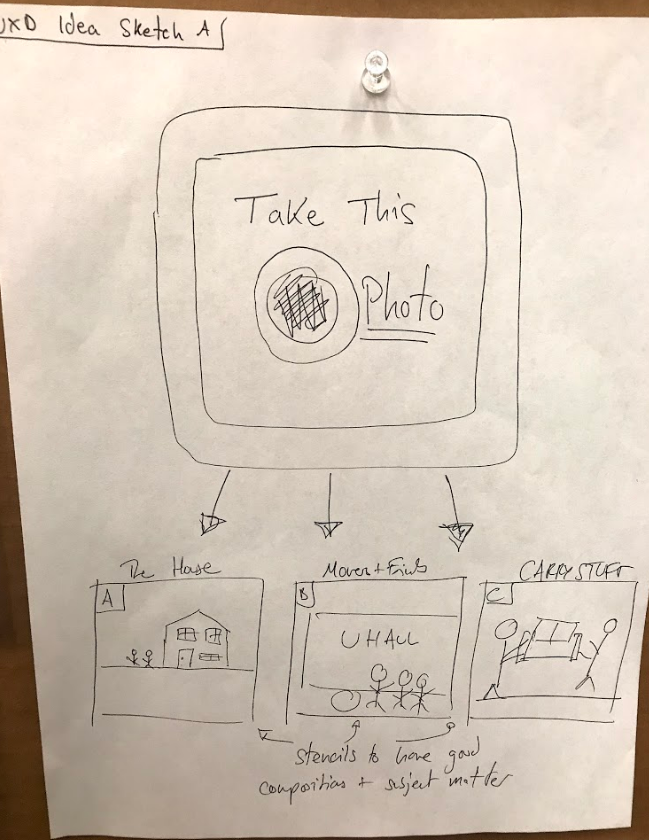 UXD Idea Sketch A
Take This
Photo
The House
Movers + Friends
CARRY STUFF
A
B
C
U HAUL
stencils to have good
composition + subject matter